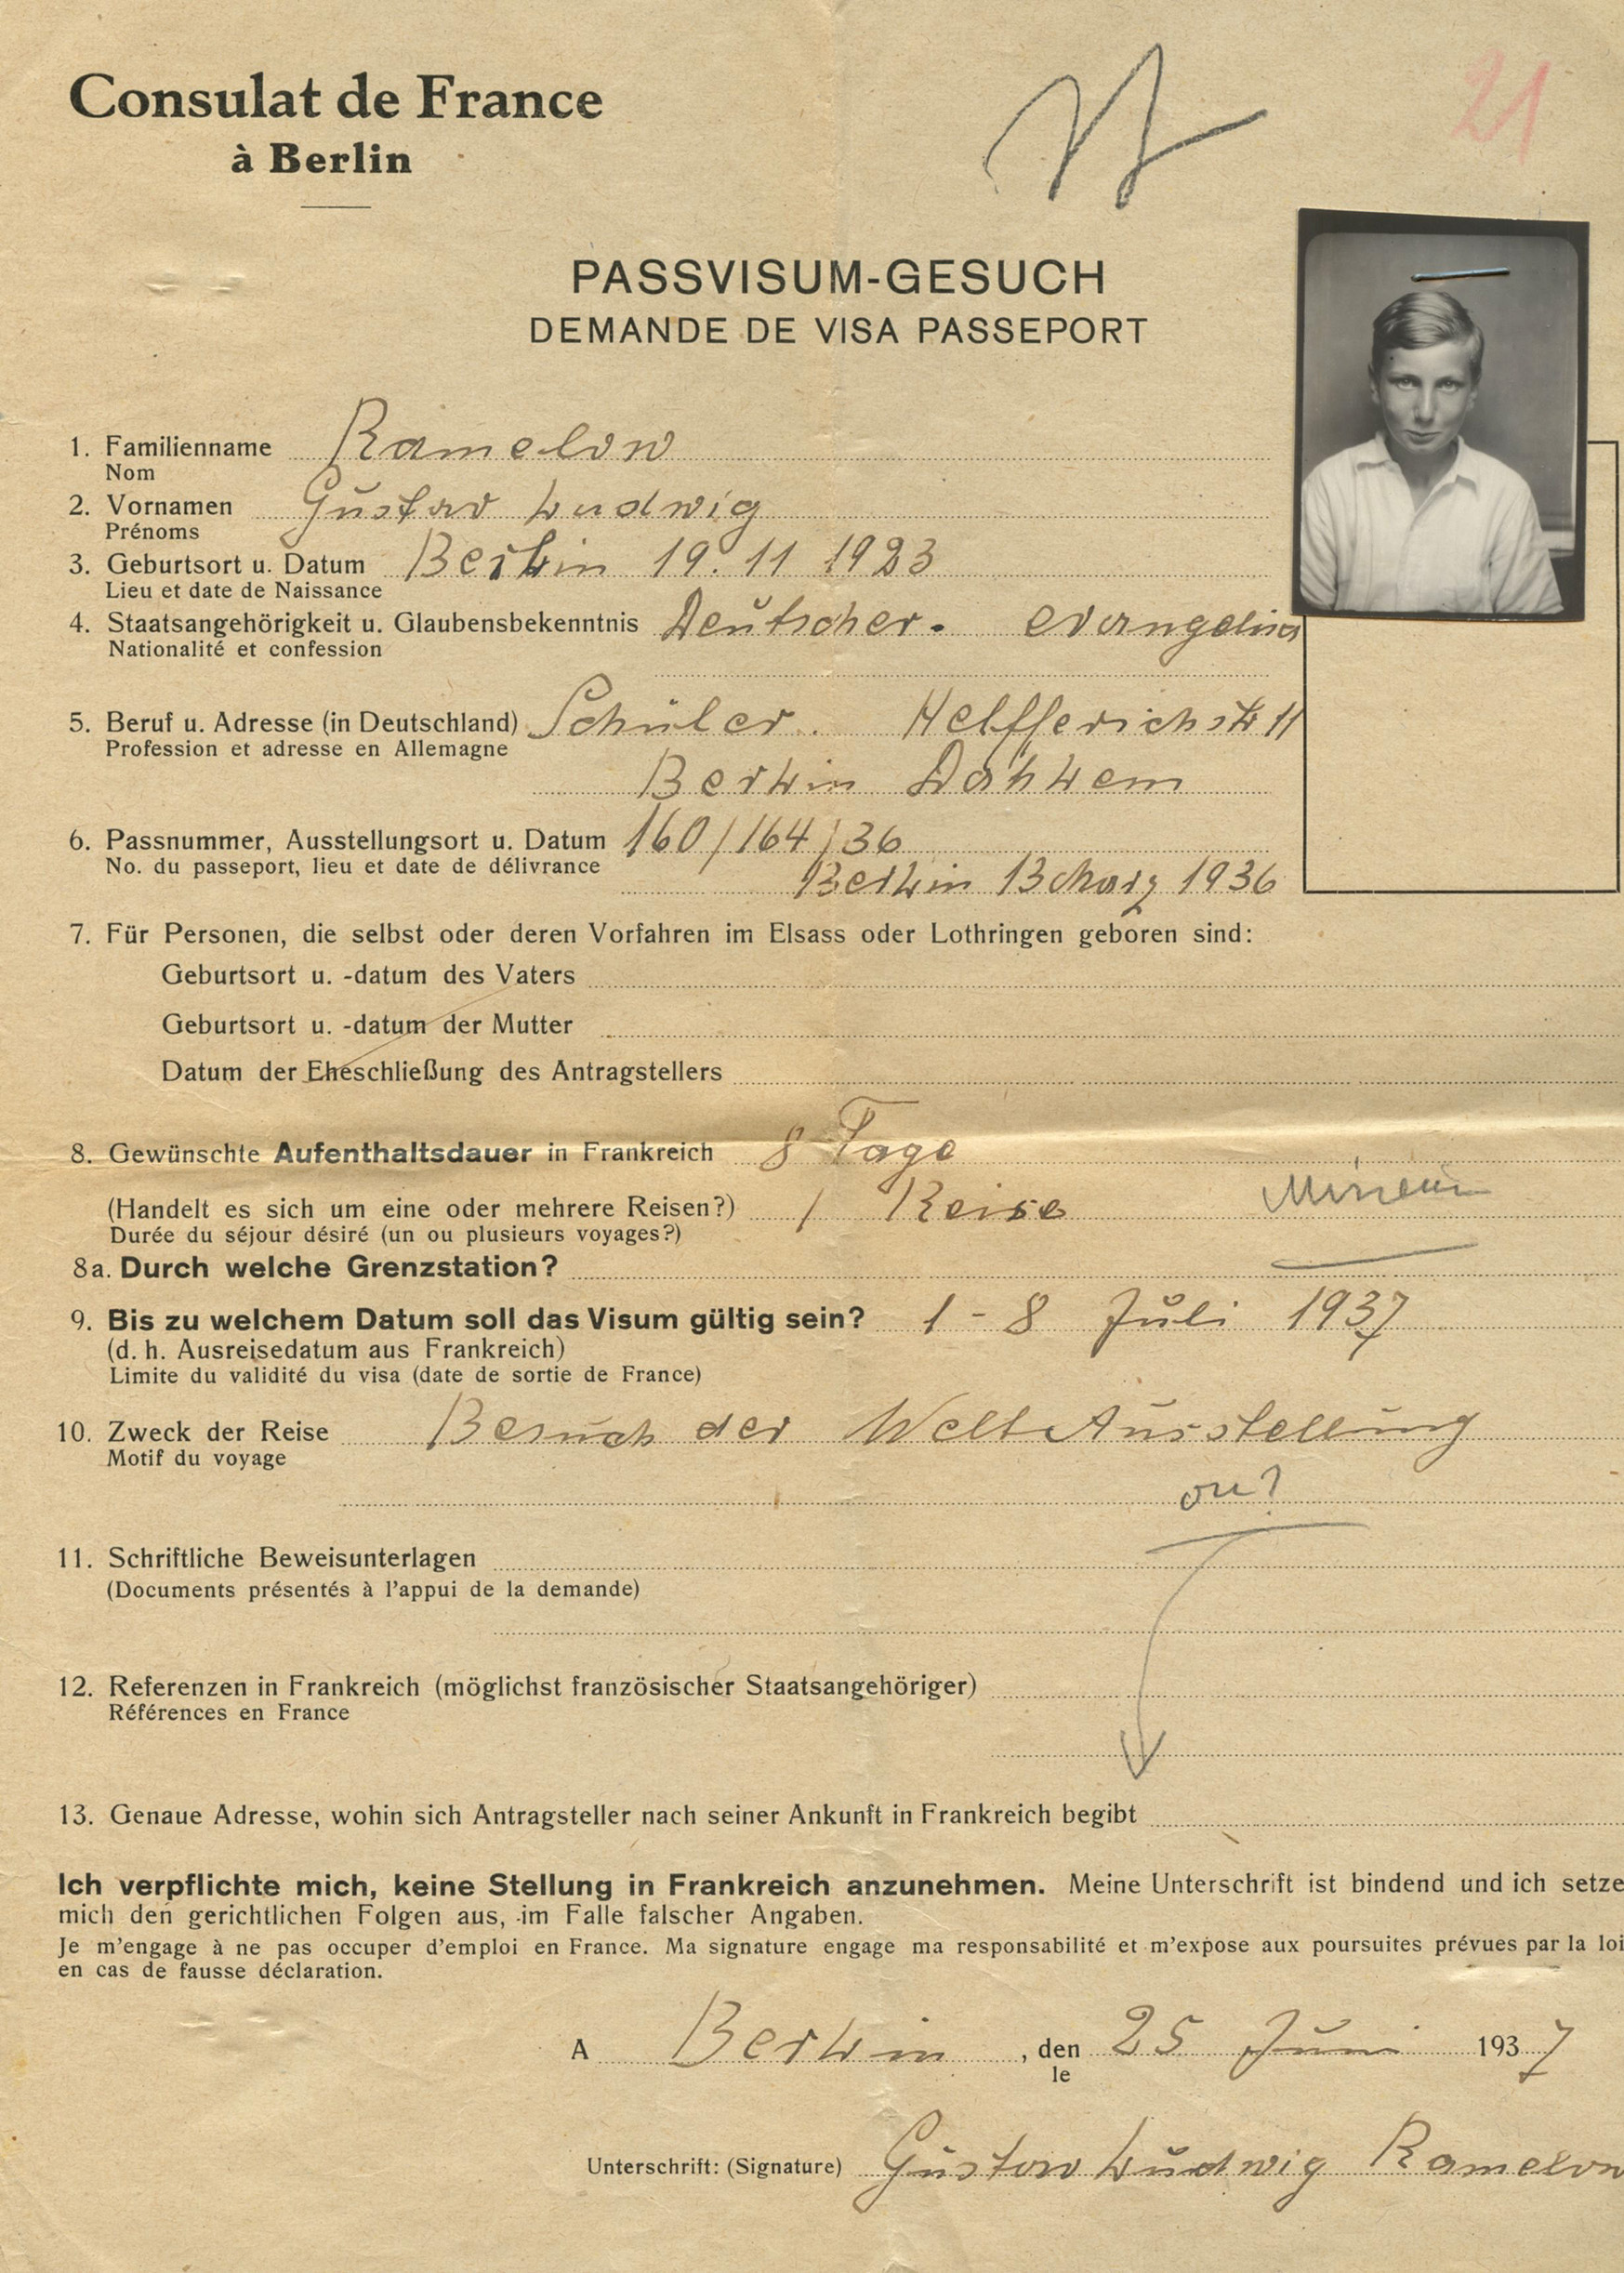 21
Consulat de France
à Berlin
PASSVISUM-GESUCH
DEMANDE DE VISA PASSEPORT
1. Familienname Ramelow
Nom
2. Vornamen Gustav Ludwig
Prénoms
3. Geburtsort u. Datum Berlin 19. 11 1923
Lieu et date de Naissance
4. Staatsangehörigkeit u. Glaubensbekenntnis Deutscher. evangelisch
Nationalité et confession
5. Beruf u. Adresse (in Deutschland) Schüler. Helfferichstr 11
Profession et adresse en Allemagne
Berlin Dahlem
6. Passnummer, Ausstellungsort u. Datum 160/164/36
No. du passeport, lieu et date de délivrance
Berlin 13 März 1936
7. Für Personen, die selbst oder deren Vorfahren im Elsass oder Lothringen geboren sind:
Geburtsort u. -datum des Vaters
Geburtsort u. -datum der Mutter
Datum der Eheschließung des Antragstellers
8. Gewünschte Aufenthaltsdauer in Frankreich 8 Tage
(Handelt es sich um eine oder mehrere Reisen?) 1 Reise
Durée du séjour désiré (un ou plusieurs voyages?)
8a. Durch welche Grenzstation?
9. Bis zu welchem Datum soll das Visum gültig sein? 1 - 8 Juli 1937
(d. h. Ausreisedatum aus Frankreich)
Limite du validité du visa (date de sortie de France)
10. Zweck der Reise Besuch der Welt Ausstellung
Motif du voyage
ou?
11. Schriftliche Beweisunterlagen
(Documents présentés à l'appui de la demande)
12. Referenzen in Frankreich (möglichst französischer Staatsangehöriger)
Références en France
13. Genaue Adresse, wohin sich Antragsteller nach seiner Ankunft in Frankreich begibt
Ich verpflichte mich, keine Stellung in Frankreich anzunehmen. Meine Unterschrift ist bindend und ich setze
mich den gerichtlichen Folgen aus, im Falle falscher Angaben.
Je m'engage à ne pas occuper d'emploi en France. Ma signature engage ma responsabilité et m'expose aux poursuites prévues par la loi
en cas de fausse déclaration.
A Berlin, den 25 Juni 1937
le
Unterschrift: (Signature) Gustav Ludwig Ramelow